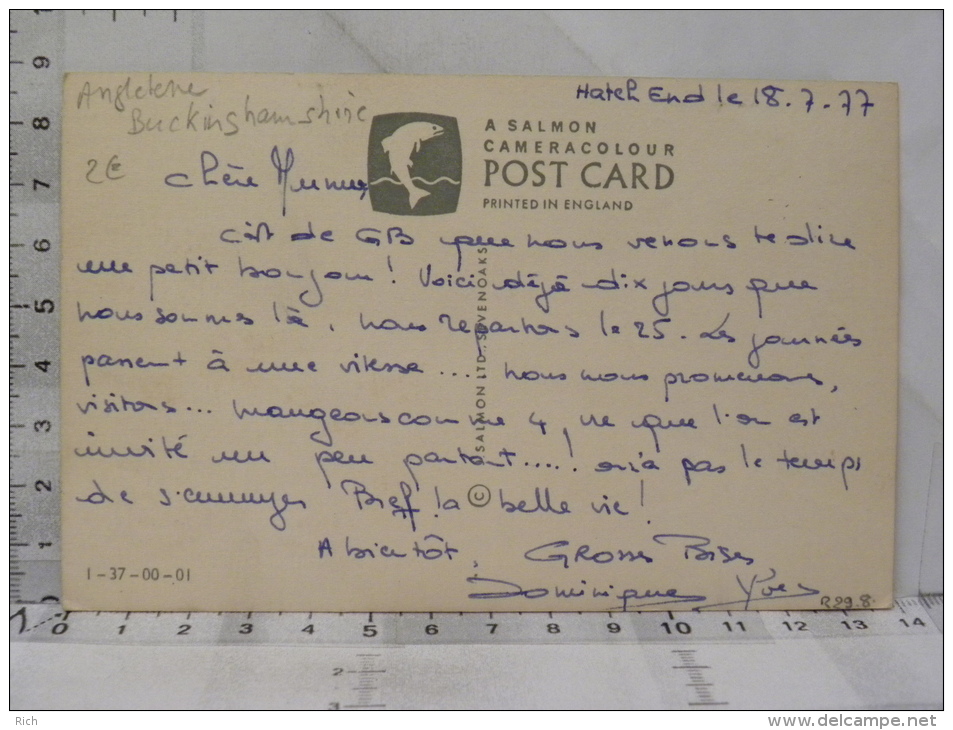 Angleterre
Buckinghamshire
2€
Hatch End le 18.7.77
A SALMON
CAMERACOLOUR
POST CARD
PRINTED IN ENGLAND
Chère
C'est de GB que nous venons te dire
un petit bonjour! Voici déjà dix jours que
nous sommes là, nous repartons le 25. Les journées
passent à une vitesse.... nous nous promenons,
visitons... mangeons comme 4, vu que l'on est
invité un peu partout.....! on a pas le temps
de s'ennuyer Bref! la belle vie!
A bientôt, Grosses Bises
Dominique Yves
© SALMON LTD. SEVENOAKS
1-37-00-01
R29.8.
9
8
7
6
5
4
3
2
1
0 1 2 3 4 5 6 7 8 9 10 11 12 13 14
2
3
Rich
www.delcampe.net